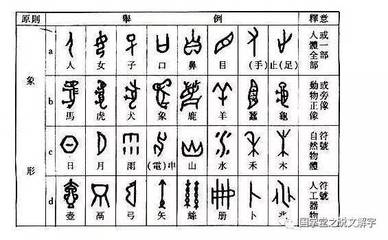 原則 舉例 釋意
象形
a
人 女 子 口 鼻 目 (手) 止(足)
人體全部
或一部
b
馬 虎 犬 象 鹿 羊 蠶 龜
動物正像
或旁像
c
日 月 雨 (電)申 山 水 禾 木
自然物體
符號
d
壺 鬲 弓 矢 絲 冊 卜
人工器物
符號
国学堂之说文解字